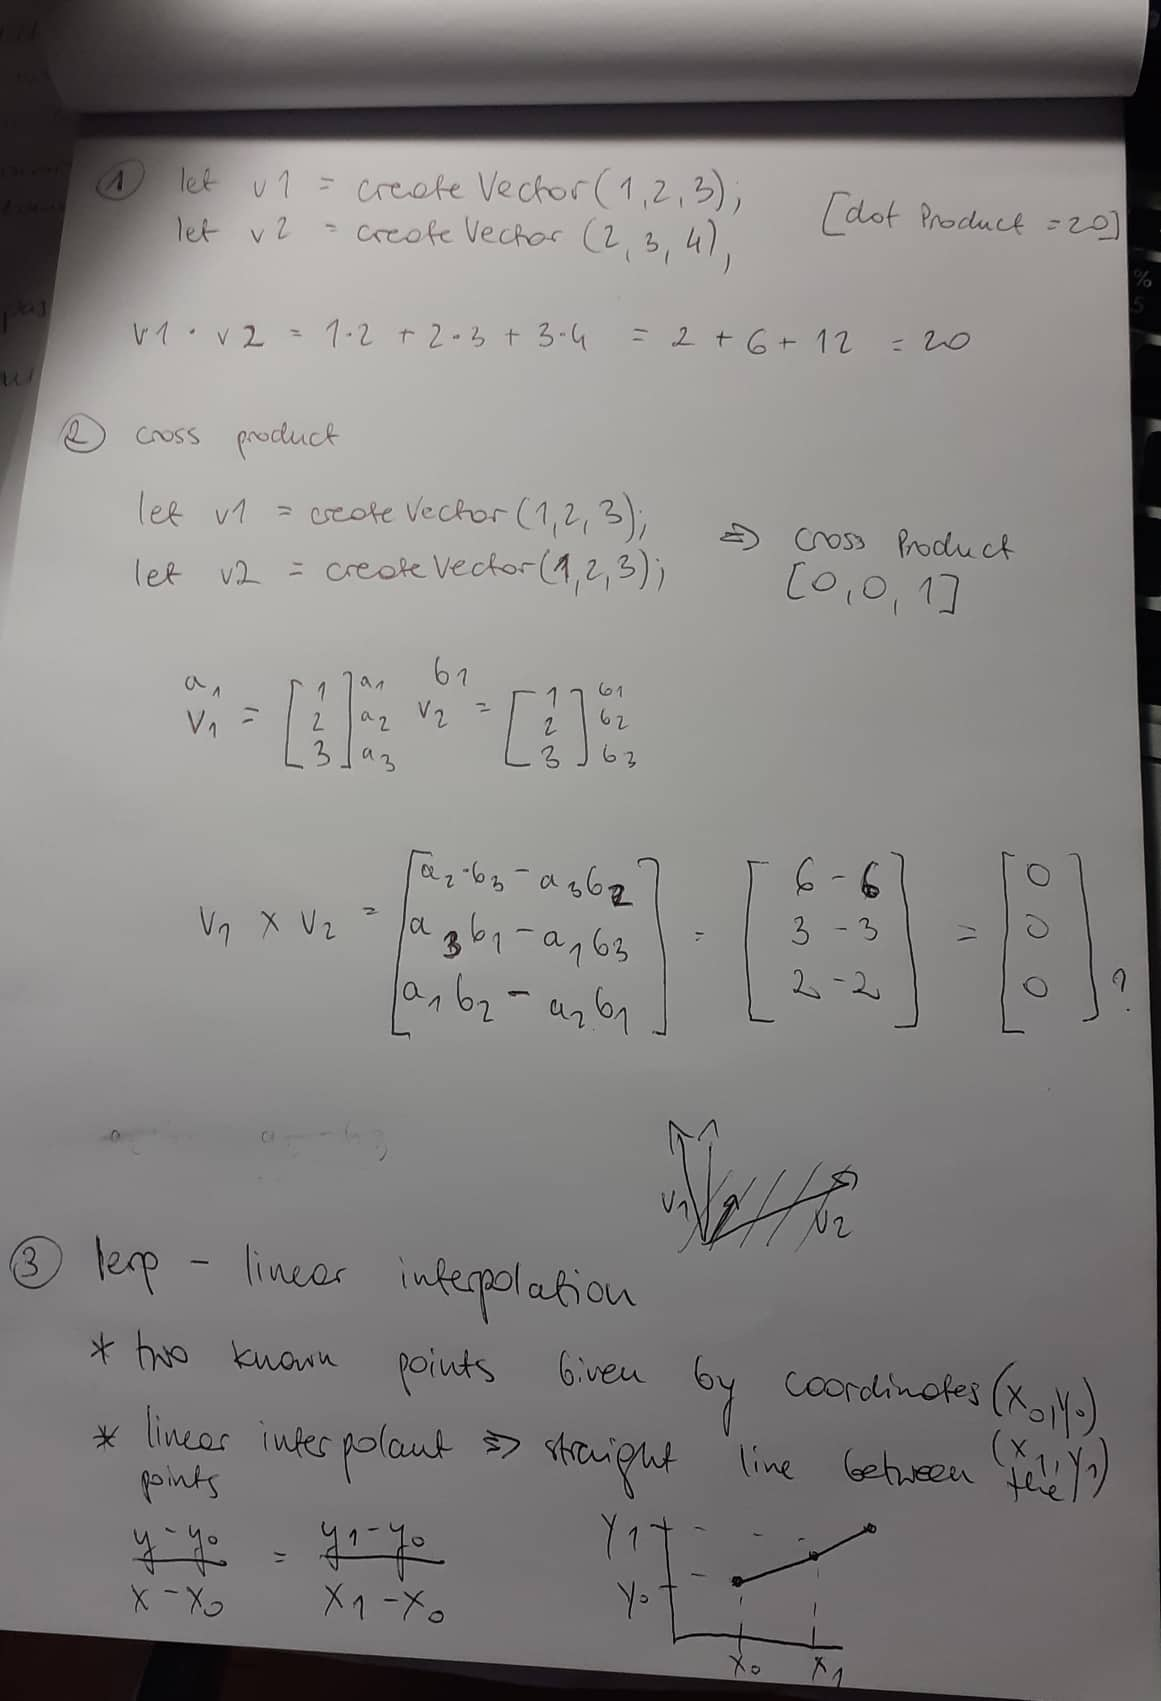 ① let v1 = createVector(1,2,3);
let v2 = createVector(2,3,4), [dot Product = 20]
v1 · v2 = 1·2 + 2·3 + 3·4 = 2 + 6 + 12 = 20
② cross product
let v1 = createVector(1,2,3);
let v2 = createVector(1,2,3); ⇒ cross Product
[0,0,1]
a₁ b1
V₁ = [1 2 3] a₁ a₂ a₃ V₂ = [1 2 3] b1 b2 b3
V₁ × V₂ = [a₂·b₃ - a₃b₂ = [6 - 6 = [0
a₃b₁ - a₁b₃ 3 - 3 0
a₁b₂ - a₂b₁] 2 - 2] 0]?
V₁ V₂
③ lerp - linear interpolation
* two known points Given by coordinates (x₀,y₀)
(x₁,y₁)
* linear interpolant ⇒ straight line between the
points
y-y₀ / x-x₀ = y₁-y₀ / x₁-x₀
Y1
Y₀
X₀ X₁
%
5